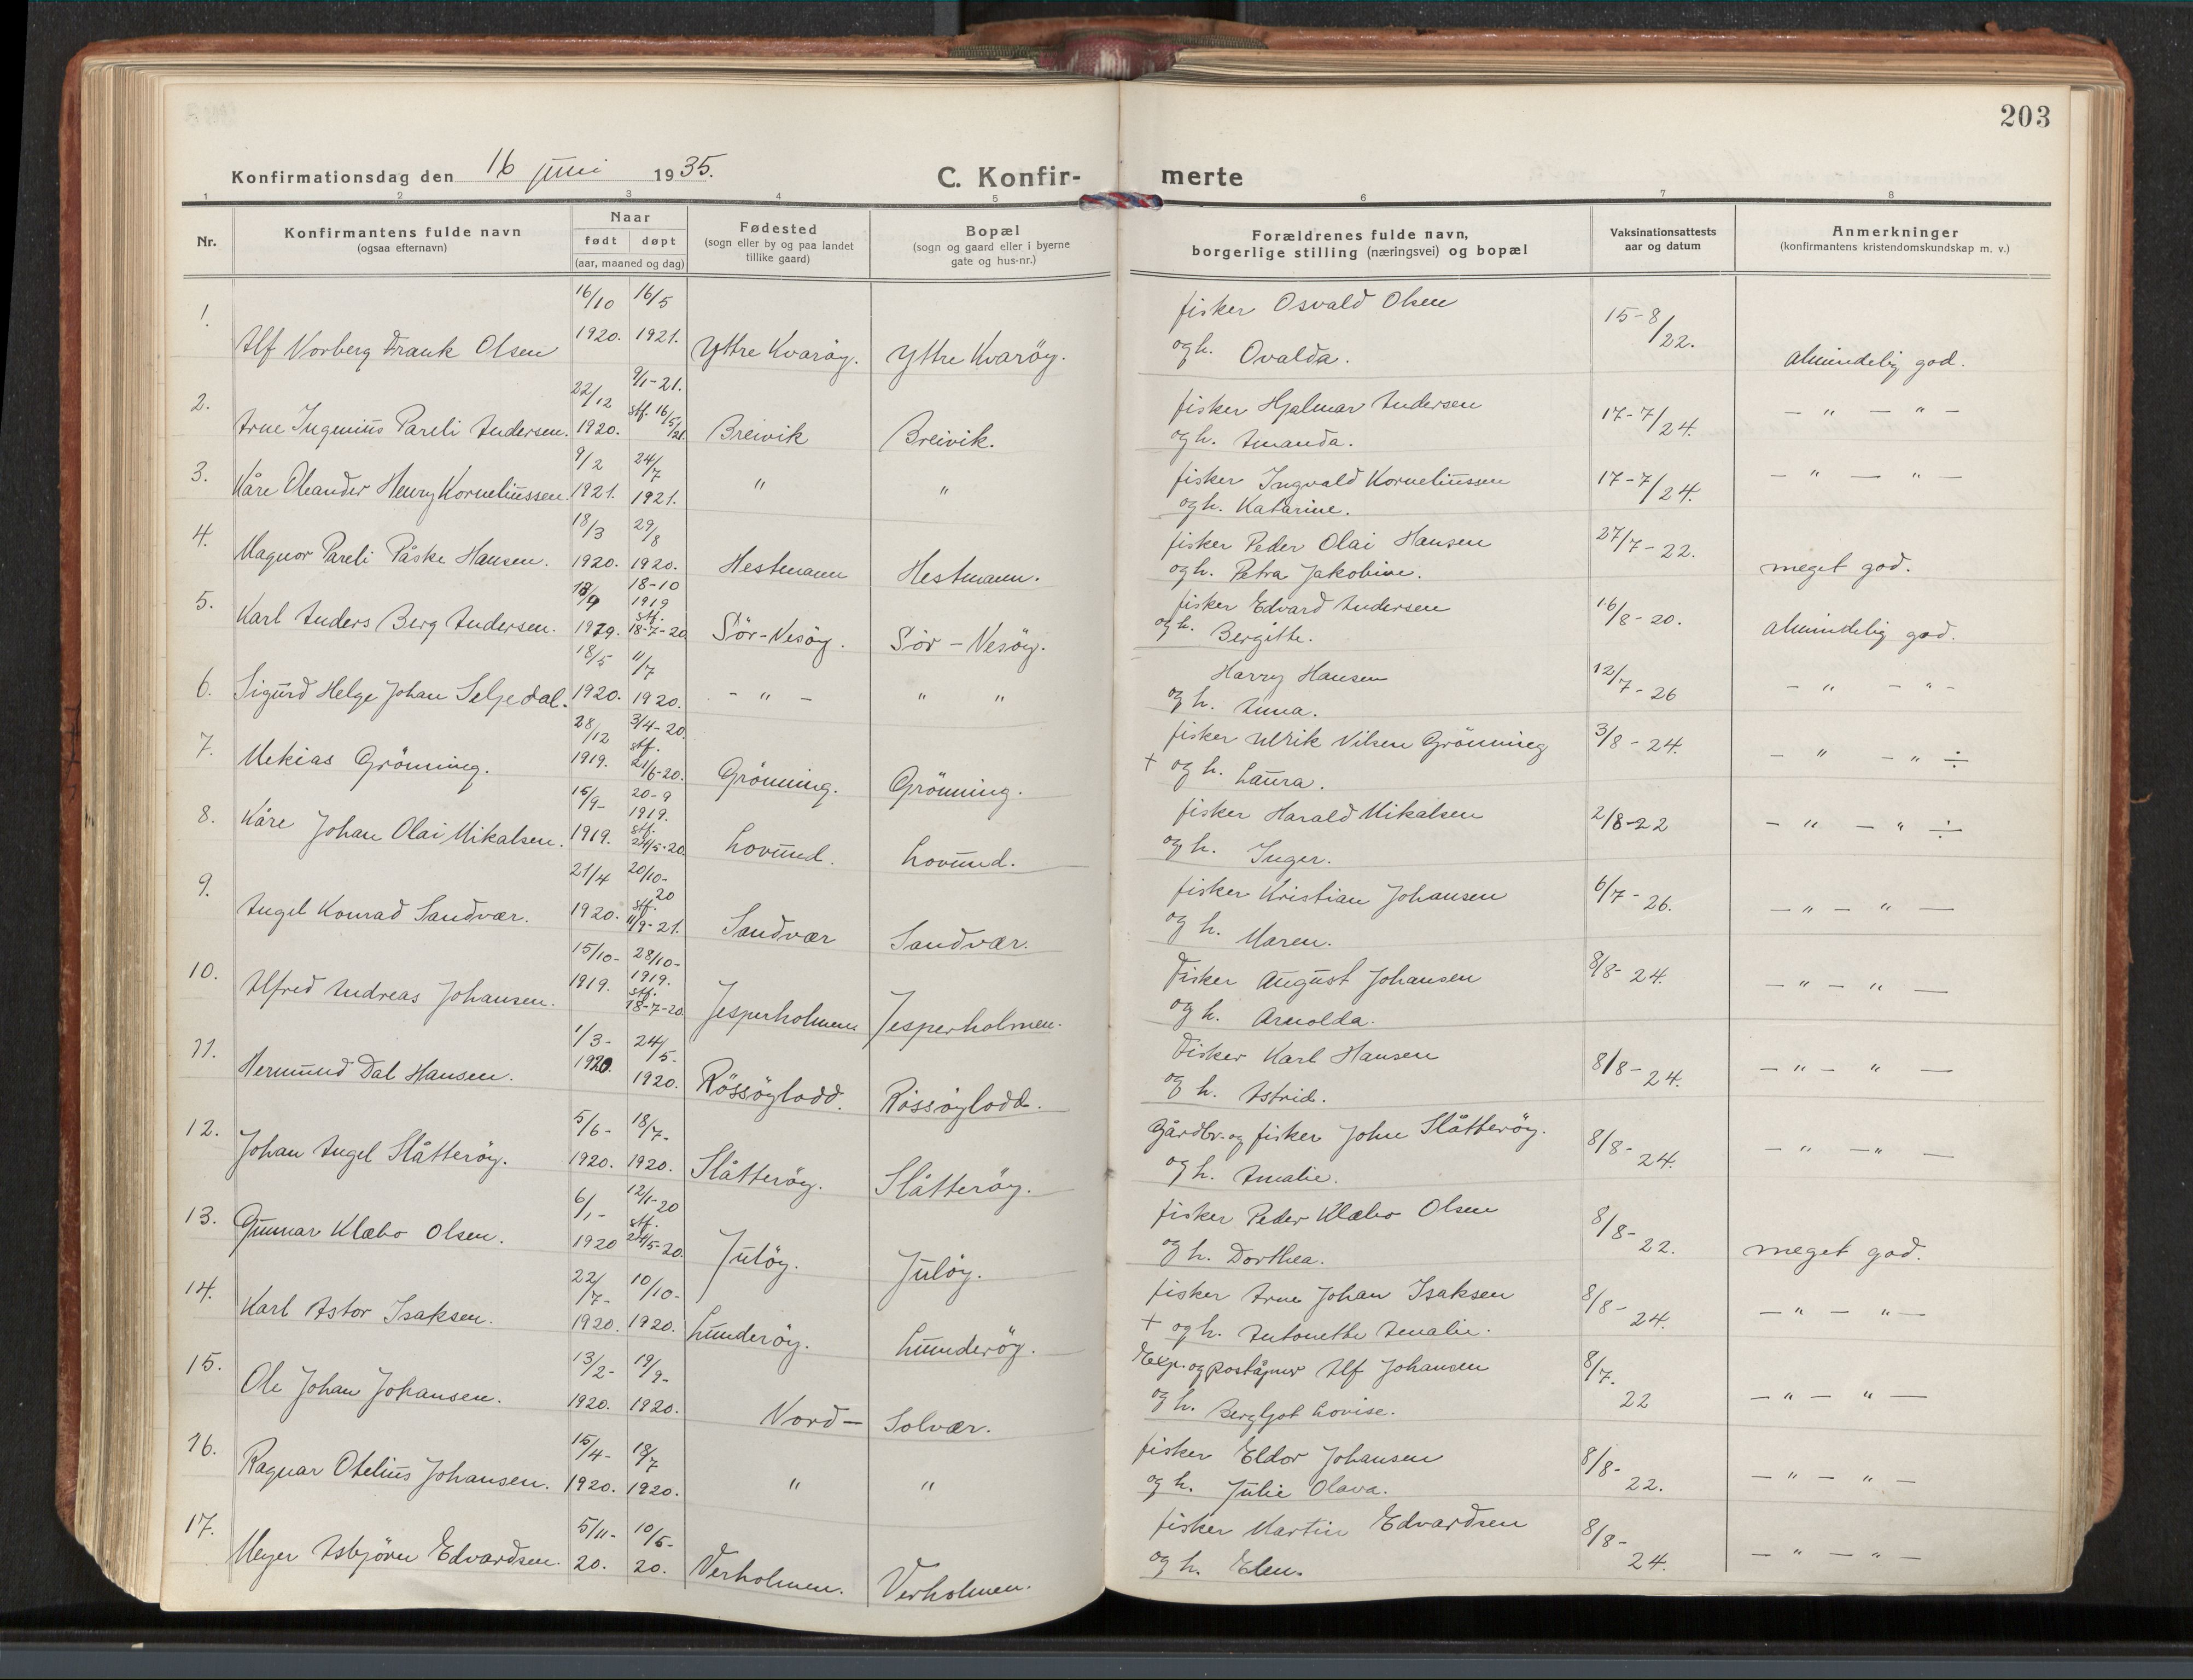 203
Konfirmationsdag den 16 juni 1935.
C. Konfir- merte
1 2 3 4 5 6 7 8
Nr.
Konfirmantens fulde navn
(ogsaa efternavn)
Naar
født døpt
(aar, maaned og dag)
Fødested
(sogn eller by og paa landet
tillike gaard)
Bopæl
(sogn og gaard eller i byerne
gate og hus-nr.)
Forældrenes fulde navn,
borgerlige stilling (næringsvei) og bopæl
Vaksinationsattests
aar og datum
Anmerkninger
(konfirmantens kristendomskundskap m. v.)
1. 16/10 16/5 fisker Osvald Olsen 15-8/22.
Alf Norberg Frank Olsen 1920. 1921. Yttre Kvarøy. Yttre Kvarøy. og h. Ovalda. almindelig god.
2. 22/12 9/1-21. fisker Hjalmar Andersen 17-7/24. — " — " —
Arne Ingenius Pareli Andersen. 1920. stf. 16/5/21. Breivik Breivik. og h. Amanda.
3. 9/2 24/7 fisker Ingvald Korneliussen 17-7/24. — " — " —
Kåre Oleander Henry Korneliussen. 1921. 1921. " " og h. Katarine.
4. 18/3 29/8 fisker Peder Olai Hansen 27/7-22.
Magnor Pareli Påske Hansen. 1920. 1920. Hestmann Hestmann. og h. Petra Jakobine. meget god.
5. 18/9 18-10 1919 fisker Edvard Andersen 16/8-20.
Karl Anders Berg Andersen. 1919. stf. 18-7-20 Sör-Nesöy. Sör-Nesöy. og h. Bergitte. almindelig god.
6. 18/5 11/7 Harry Hansen 12/7-26 — " — " —
Sigurd Helge Johan Seljedal. 1920. 1920. — " — " " og h. Anna.
7. 28/12 3/4-20. fisker Ulrik Nilsen Grönning 3/8-24. — " — " ÷
Mekias Grönning. 1919. stf. 21/6-20. Grönning. Grönning. + og h. Laura.
8. 15/9- 20-9 1919. fisker Harald Mikalsen 2/8-22 — " — " ÷
Kåre Johan Olai Mikalsen. 1919. stf. 24/5-20. Lovund. Lovund. og h. Inger.
9. 21/4 20/10-20 fisker Kristian Johansen 6/7-26. — " — " —
Angel Konrad Sandvær. 1920. stf. 11/9-21. Sandvær Sandvær. og h. Maren.
10. 15/10- 28/10- 1919. Fisker August Johansen 8/8-24. — " — " —
Alfred Andreas Johansen. 1919. stf. 18-7-20. Jesperholmen Jesperholmen. og h. Arnolda.
11. 1/3- 24/5- Fisker Karl Hansen 8/8-24. — " — " —
Hermund Dal Hansen. 1920. 1920. Rössöylodd. Rössöylodd. og h. Astrid.
12. 5/6- 18/7- Gårdbr. og fisker John Slåtteröy. 8/8-24. — " — " —
Johan Angel Slåtteröy. 1920. 1920. Slåtteröy. Slåtteröy. og h. Amalie.
13. 6/1- 12/1-20 fisker Peder Klæbo Olsen 8/8-22.
Gunnar Klæbo Olsen. 1920 stf. 24/5-20. Julöy. Julöy. og h. Dorthea. meget god.
14. 22/7- 10/10- fisker Arne Johan Isaksen 8/8-24. — " — " —
Karl Astor Isaksen. 1920. 1920. Lunderöy. Lunderöy. + og h. Antonette Amalie.
15. 13/2- 19/9- Eksp. og poståpner Alf Johansen 8/7. 22 — " — " —
Ole Johan Johansen. 1920. 1920. Nord— Solvær. og h. Bergljot Lovise.
16. 15/4- 18/7 fisker Eldor Johansen 8/8-22. — " — " —
Ragnar Otelius Johansen. 1920. 1920. " " og h. Julie Olava.
17. 5/11- 10/5- fisker Martin Edvardsen 8/8-24. — " — " —
Meyer Asbjörn Edvardsen. 20. 20. Verholmen. Verholmen. og h. Elen.